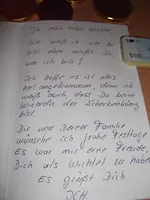 Du mein lieber Wichtel
ICH weiß ist wer Du
bist aber weißt Du
wer ich bin?
Ich hoffe es ist alles
heil angekommen, denn ich
weiß Doch, dass Du beim
Wichteln der Scherbenkönig
bist.
Dir und Deiner Familie
wünsche ich frohe Festtage
Es war mir eine Freude,
Dich als Wichtel zu haben
Es grüßt Dich
ICH